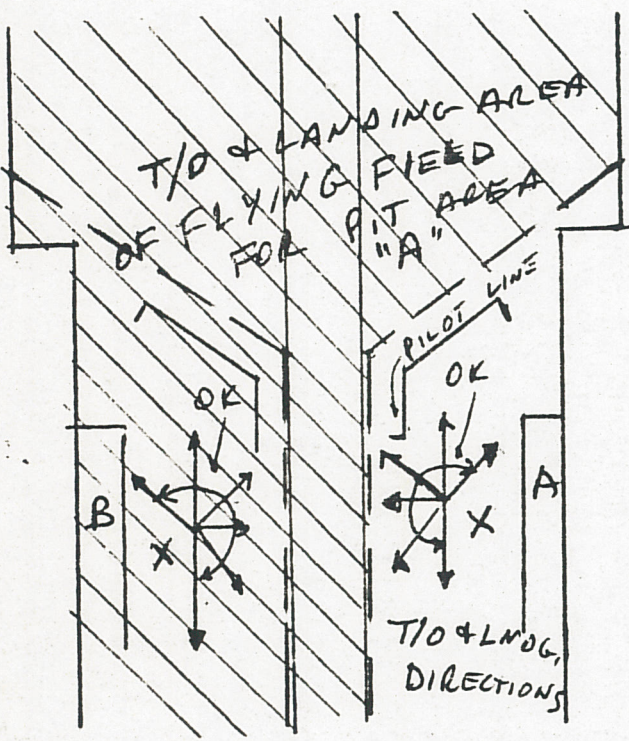 T/O & LANDING AREA
OF FLYING FIEED
FOR PIT AREA
"A"
PILOT LINE
OK
OK
B
X
X
A
T/O & LNDG,
DIRECTIONS